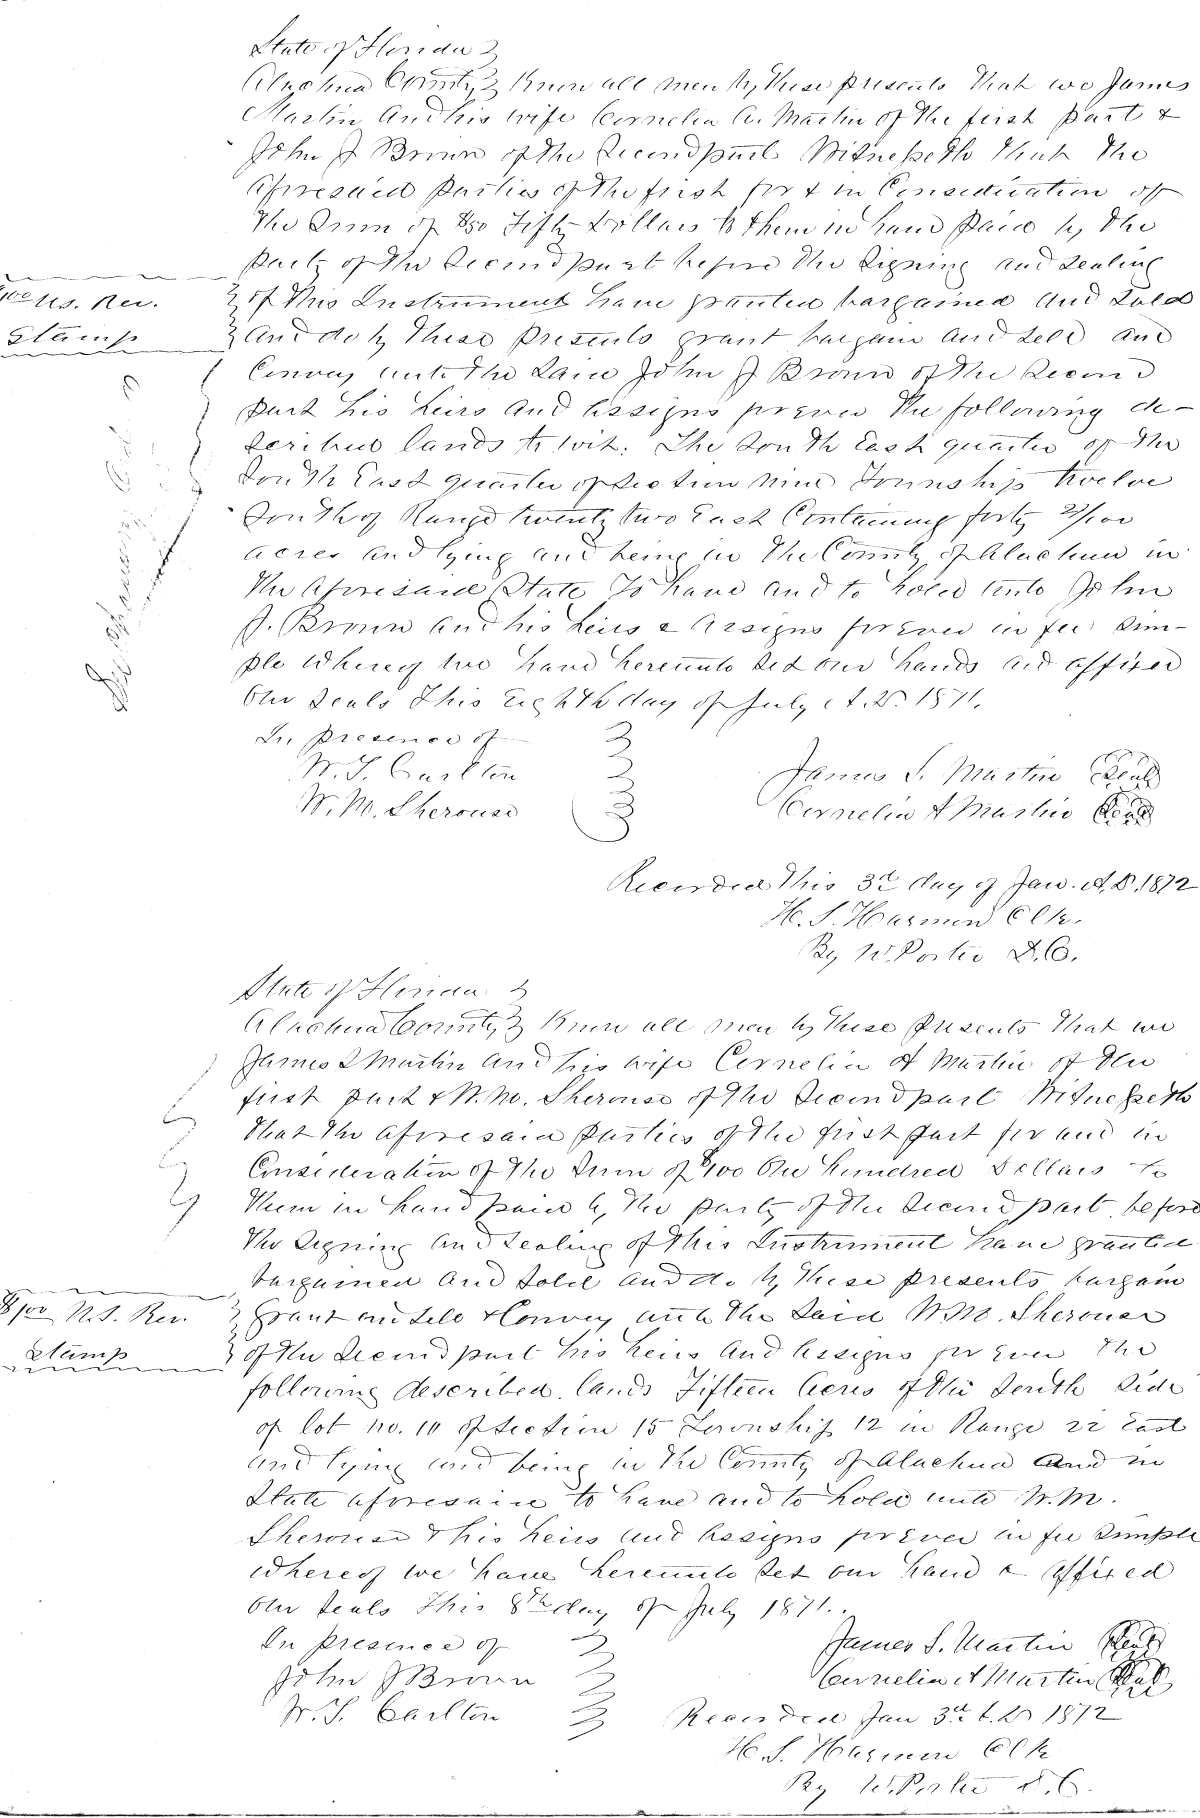 State of Florida }
Alachua County } Know all men by these presents that we James
Martin and his wife Cornelia A. Martin of the first part &
John J Brown of the Second part Witnesseth that the
aforesaid parties of the first for & in Consideration of
the Sum of $50 Fifty Dollars to them in hand paid by the
party of the Second part before the Signing and Sealing
of this Instrument have granted bargained and Sold
U.S. Rev.
Stamp
and do by these presents grant bargain and Sell and
Convey unto the Said John J Brown of the Second
part his heirs and assigns forever the following de-
scribed lands to wit: The South East quarter of the
South East quarter of Section nine Township twelve
South of Range twenty two East Containing forty /100
acres and lying and being in the County of Alachua in
the aforesaid State To have and to hold unto John
J. Brown and his heirs & assigns forever in fee Sim-
ple Whereof we have hereunto set our hands and affixed
Our Seals this Eighth day of July A.D. 1871.
In presence of
W. T. Carlton
W. M. Sherouse
James S. Martin Seal
Cornelia A Martin Seal
Recorded this 3rd day of Jan. A.D. 1872
H. S. Harmon Clk.
By W. Porter D.C.
State of Florida }
Alachua County } Know all men by these presents that we
James S Martin and his wife Cornelia A Martin of the
first part & W. M. Sherouse of the Second part Witnesseth
that the aforesaid parties of the first part for and in
Consideration of the Sum of $100 One hundred Dollars to
them in hand paid by the party of the Second part before
the Signing and Sealing of this Instrument have granted
bargained and Sold and do by these presents bargain
U.S. Rev.
Stamp
grant and Sell & Convey unto the Said W. M. Sherouse
of the Second part his heirs and assigns forever the
following described lands Fifteen Acres of the South Side
of lot no. 10 of Section 15 Township 12 in Range 22 East
and lying and being in the County of Alachua and in
State aforesaid to have and to hold unto W. M.
Sherouse & his heirs and assigns forever in fee Simple
Whereof we have hereunto Set our hand & affixed
Our Seals this 8th day of July 1871.
In presence of
John J Brown
W. T. Carlton
James S. Martin Seal
Cornelia A Martin Seal
Recorded Jan 3rd A.D. 1872
H. S. Harmon Clk
By W. Porter D.C.